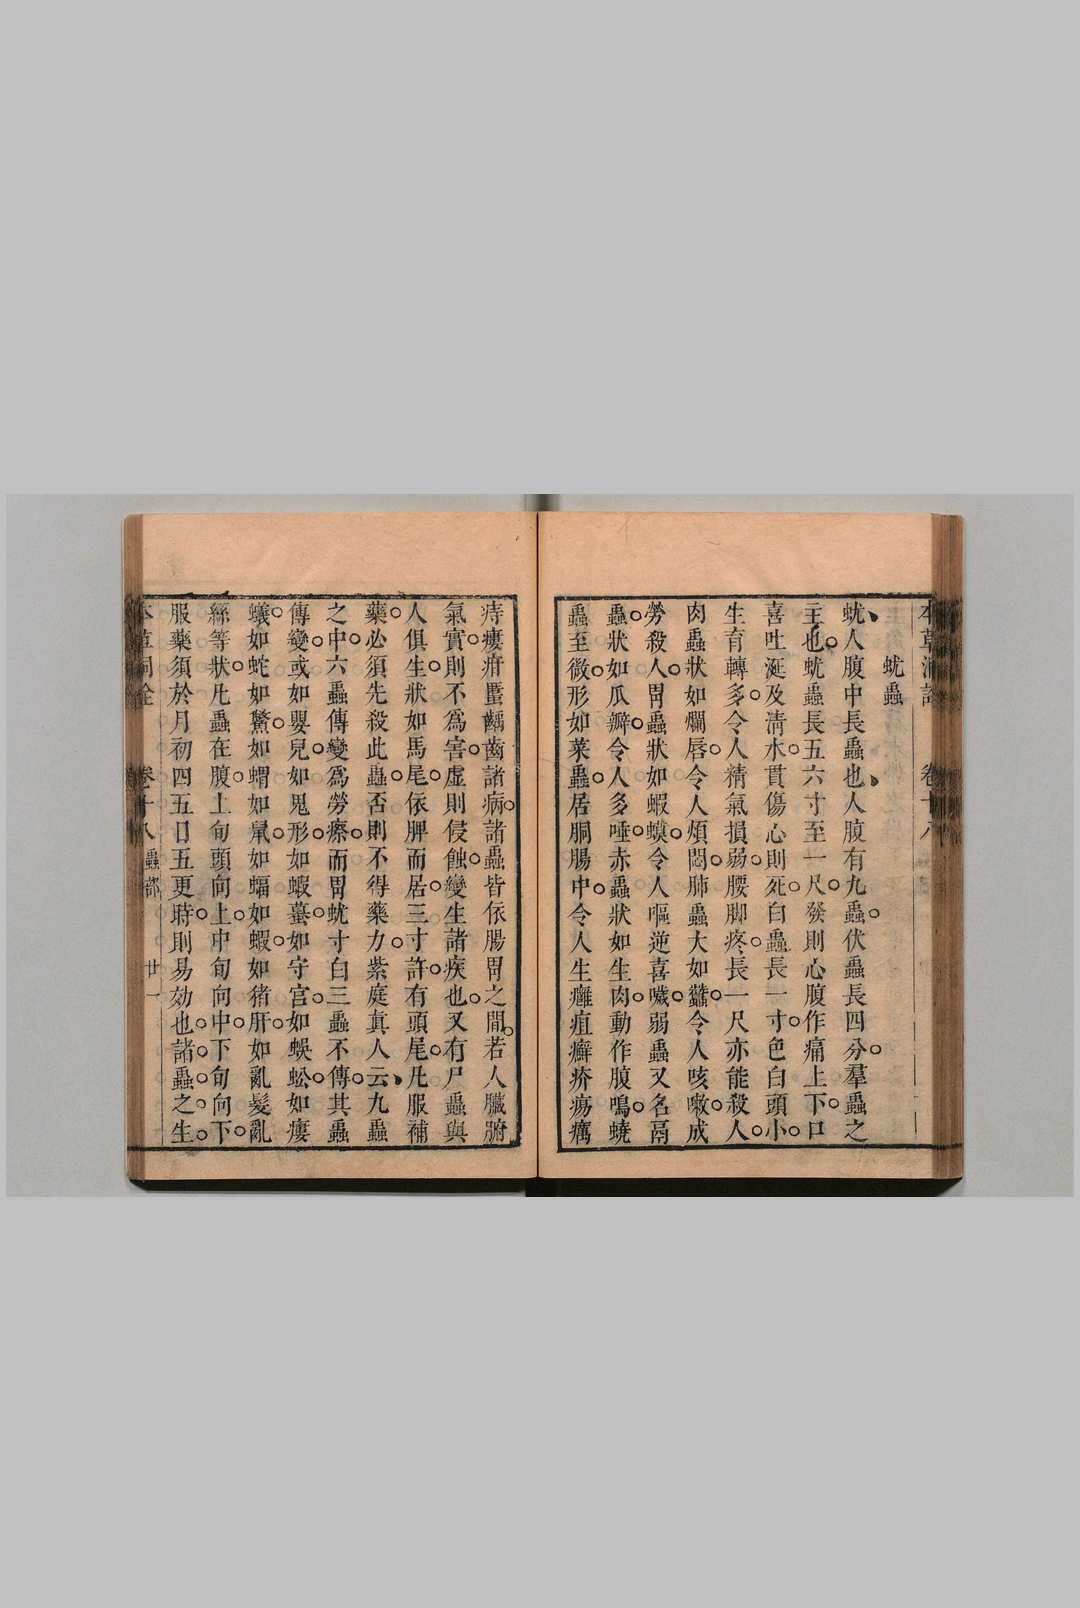 蚘蟲
蚘人腹中長蟲也人腹有九蟲伏蟲長四分羣蟲之
主也蚘蟲長五六寸至一尺發則心腹作痛上下口
喜吐涎及淸水貫傷心則死白蟲長一寸色白頭小
生育轉多令人精氣損弱腰脚疼長一尺亦能殺人
肉蟲狀如爛唇令人煩悶肺蟲大如蠶令人咳嗽成
勞殺人胃蟲狀如蝦蟆令人嘔逆喜噦弱蟲又名鬲
蟲狀如瓜瓣令人多唾赤蟲狀如生肉動作腹鳴蟯
蟲至微形如菜蟲居胴腸中令人生癰疽癬疥瘍癘
痔瘻疳䘌齲齒諸病諸蟲皆依腸胃之間若人臟腑
氣實則不爲害虛則侵蝕變生諸疾也又有尸蟲與
人俱生狀如馬尾依脾而居三寸許有頭尾凡服補
藥必須先殺此蟲否則不得藥力紫庭眞人云九蟲
之中六蟲傳變爲勞瘵而胃蚘寸白三蟲不傳其蟲
傳變或如嬰兒如鬼形如蝦蟇如守宮如蜈蚣如瘻
蟻如蛇如鱉如蝟如鼠如蝠如蝦如猪肝如亂髮亂
絲等狀凡蟲在腹上旬頭向上中旬向中下旬向下
服藥須於月初四五日五更時則易効也諸蟲之生
本草洞詮 卷十八 蟲部 廿一